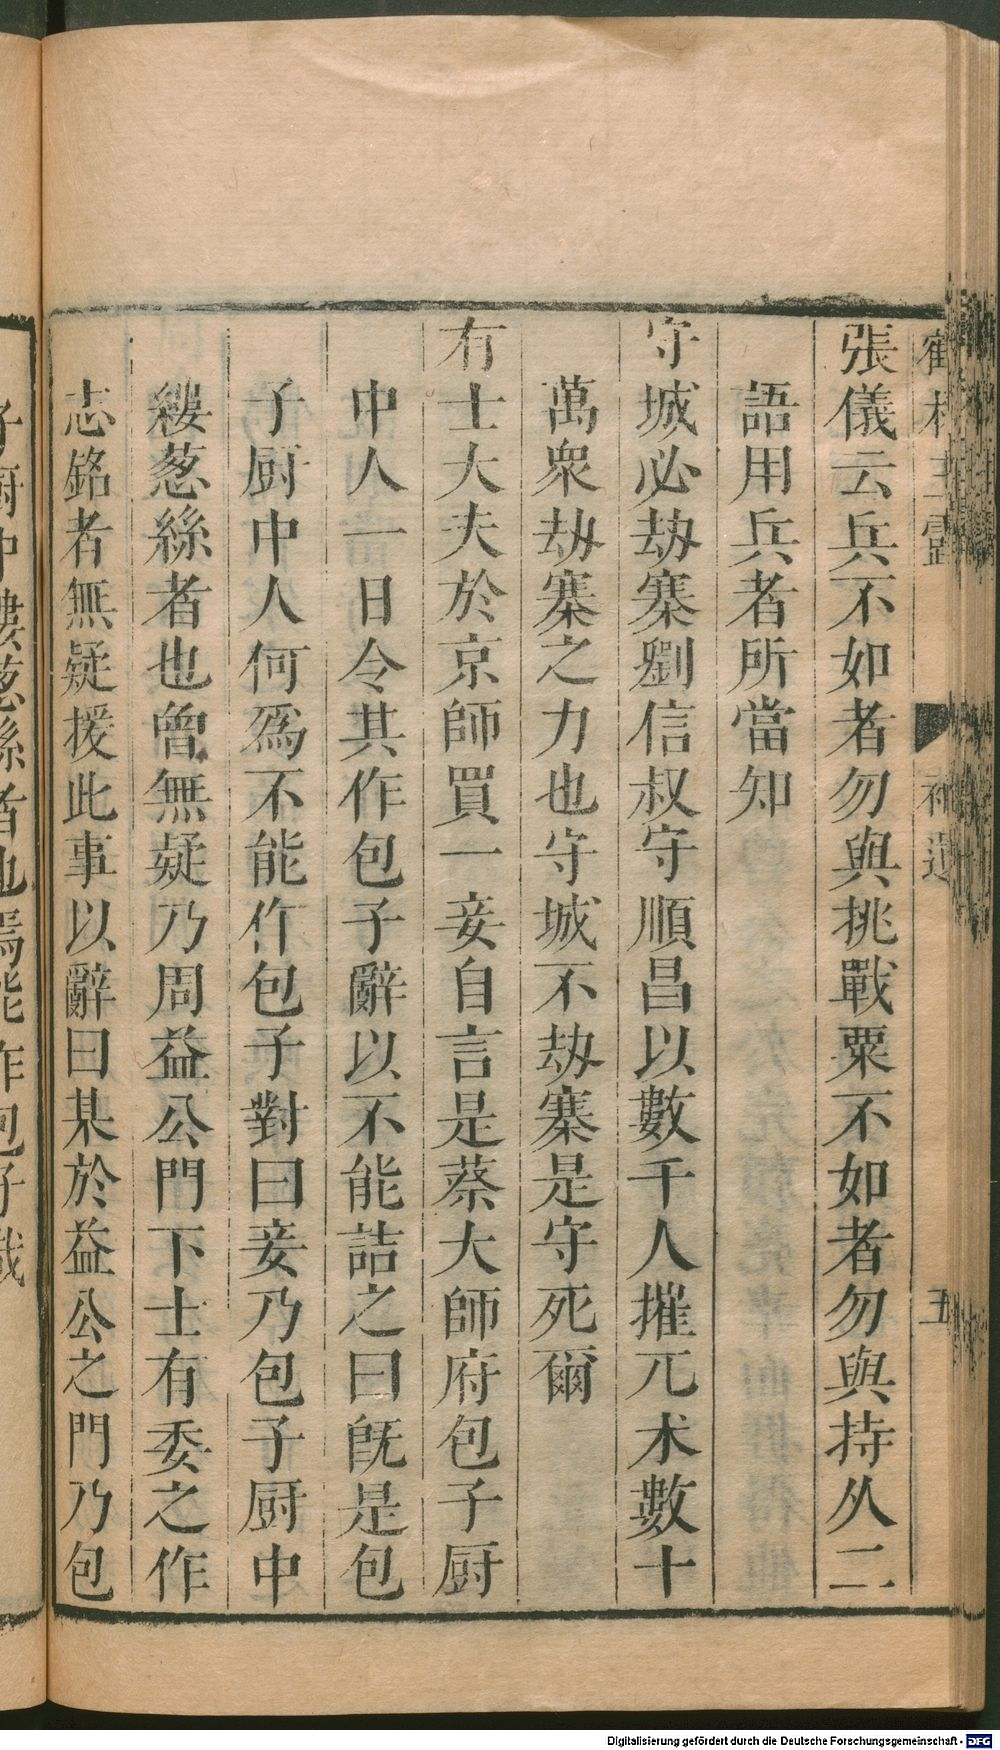 張儀云兵不如者勿與挑戰粟不如者勿與持久二
語用兵者所當知
守城必劫寨劉信叔守順昌以數千人摧兀朮數十
萬衆劫寨之力也守城不劫寨是守死爾
有士大夫於京師買一妾自言是蔡大師府包子厨
中人一日令其作包子辭以不能詰之曰旣是包
子厨中人何爲不能作包子對曰妾乃包子厨中
縷葱絲者也曾無疑乃周益公門下士有委之作
志銘者無疑援此事以辭曰某於益公之門乃包
子厨中縷葱絲者也焉能作包子哉
鶴林玉露 補遺 五
Digitalisierung gefördert durch die Deutsche Forschungsgemeinschaft - DFG